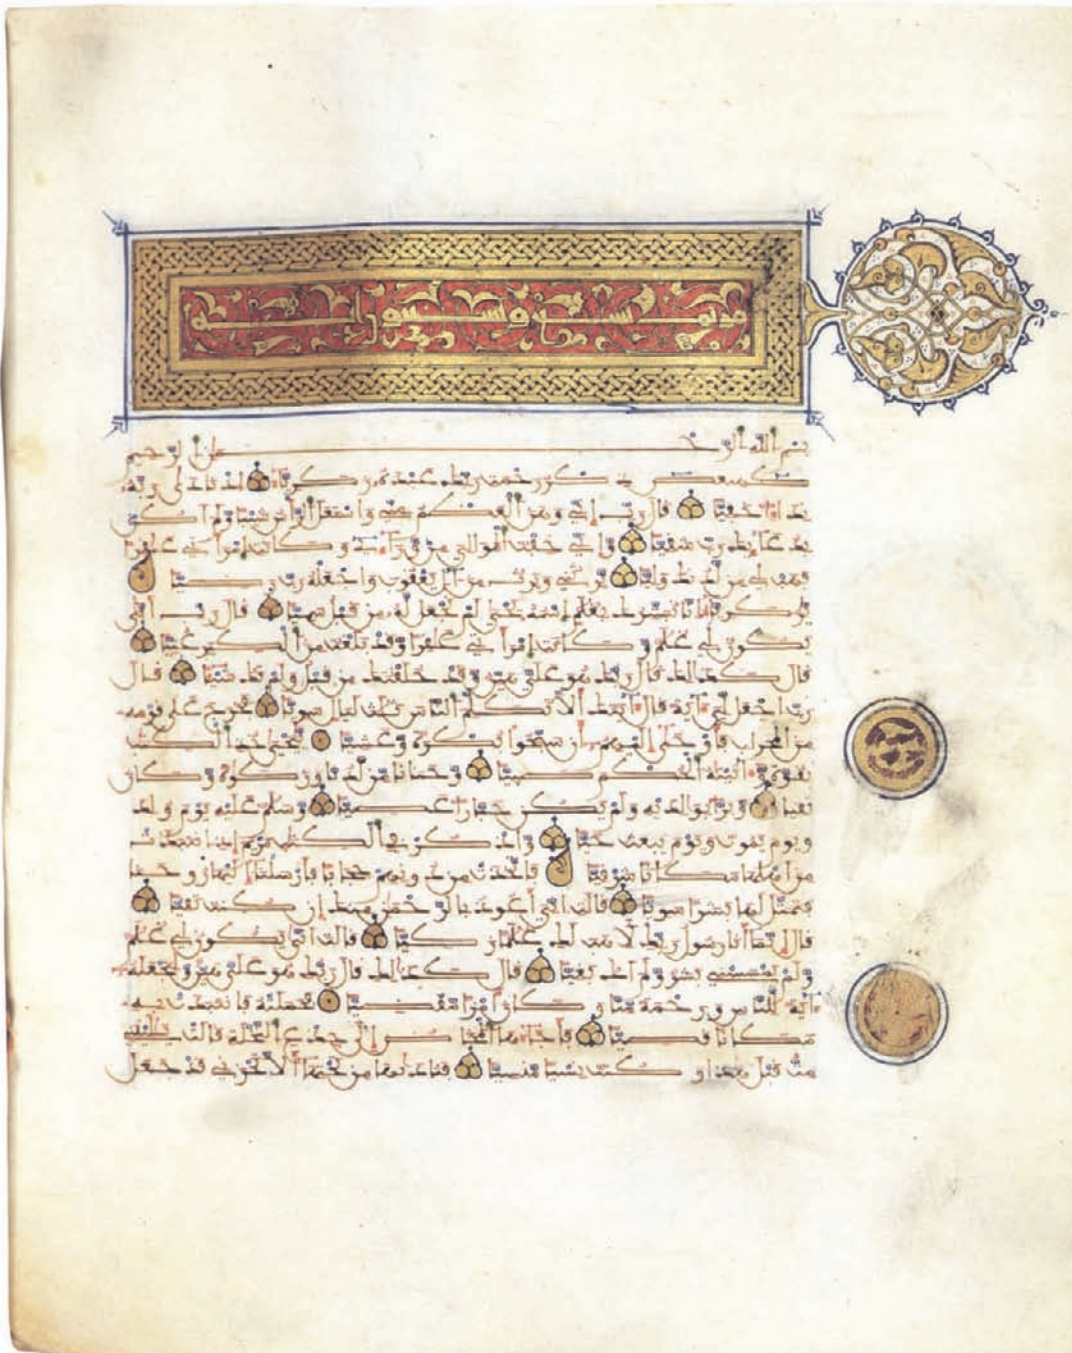 بسم الله الرحمن الرحيم
كهيعص ذكر رحمت ربك عبده زكريا إذ نادى ربه
نداء خفيا قال رب إني وهن العظم مني واشتعل الرأس شيبا ولم أكن
بدعائك رب شقيا وإني خفت الموالي من وراءي وكانت امرأتي عاقرا
فهب لي من لدنك وليا يرثني ويرث من ءال يعقوب واجعله رب رضيا
يزكريا إنا نبشرك بغلم اسمه يحيى لم نجعل له من قبل سميا قال رب أنى
يكون لي غلم وكانت امرأتي عاقرا وقد بلغت من الكبر عتيا
قال كذلك قال ربك هو علي هين وقد خلقتك من قبل ولم تك شيئا قال
رب اجعل لي ءاية قال ءايتك ألا تكلم الناس ثلث ليال سويا فخرج على قومه
من المحراب فأوحى إليهم أن سبحوا بكرة وعشيا ييحيى خذ الكتب
بقوة وءاتينه الحكم صبيا وحنانا من لدنا وزكوة وكان
تقيا وبرا بوالديه ولم يكن جبارا عصيا وسلم عليه يوم ولد
ويوم يموت ويوم يبعث حيا واذكر في الكتب مريم إذ انتبذت
من أهلها مكانا شرقيا فاتخذت من دونهم حجابا فأرسلنا إليها روحنا
فتمثل لها بشرا سويا قالت إني أعوذ بالرحمن منك إن كنت تقيا
قال إنما أنا رسول ربك لأهب لك غلما زكيا قالت أنى يكون لي غلم
ولم يمسسني بشر ولم أك بغيا قال كذلك قال ربك هو علي هين ولنجعله
ءاية للناس ورحمة منا وكان أمرا مقضيا فحملته فانتبذت به
مكانا قصيا فأجاءها المخاض إلى جذع النخلة قالت يليتني
مت قبل هذا وكنت نسيا منسيا فناديها من تحتها ألا تحزني قد جعل